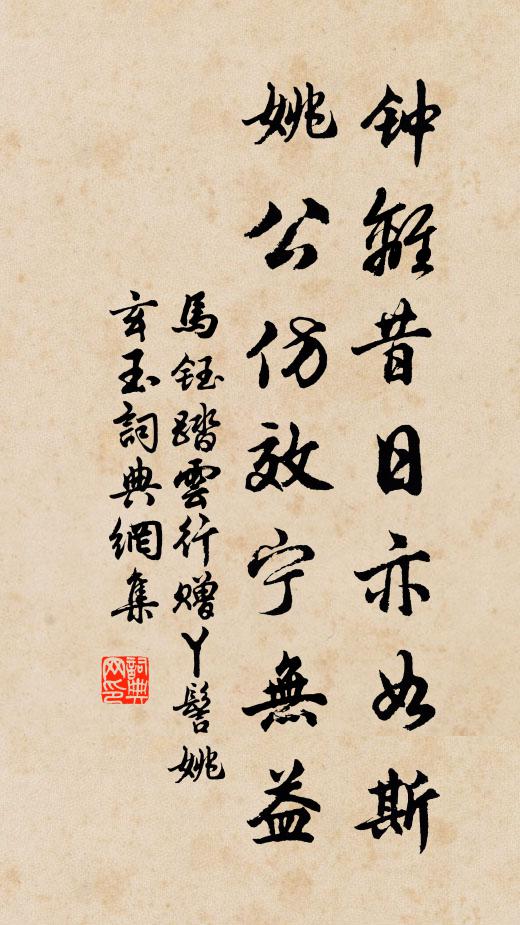 钟離昔日亦如斯
姚公仿效宁無益
馬鈺踏雲行贈丫髻姚
玄玉詞典網集
詞典网印